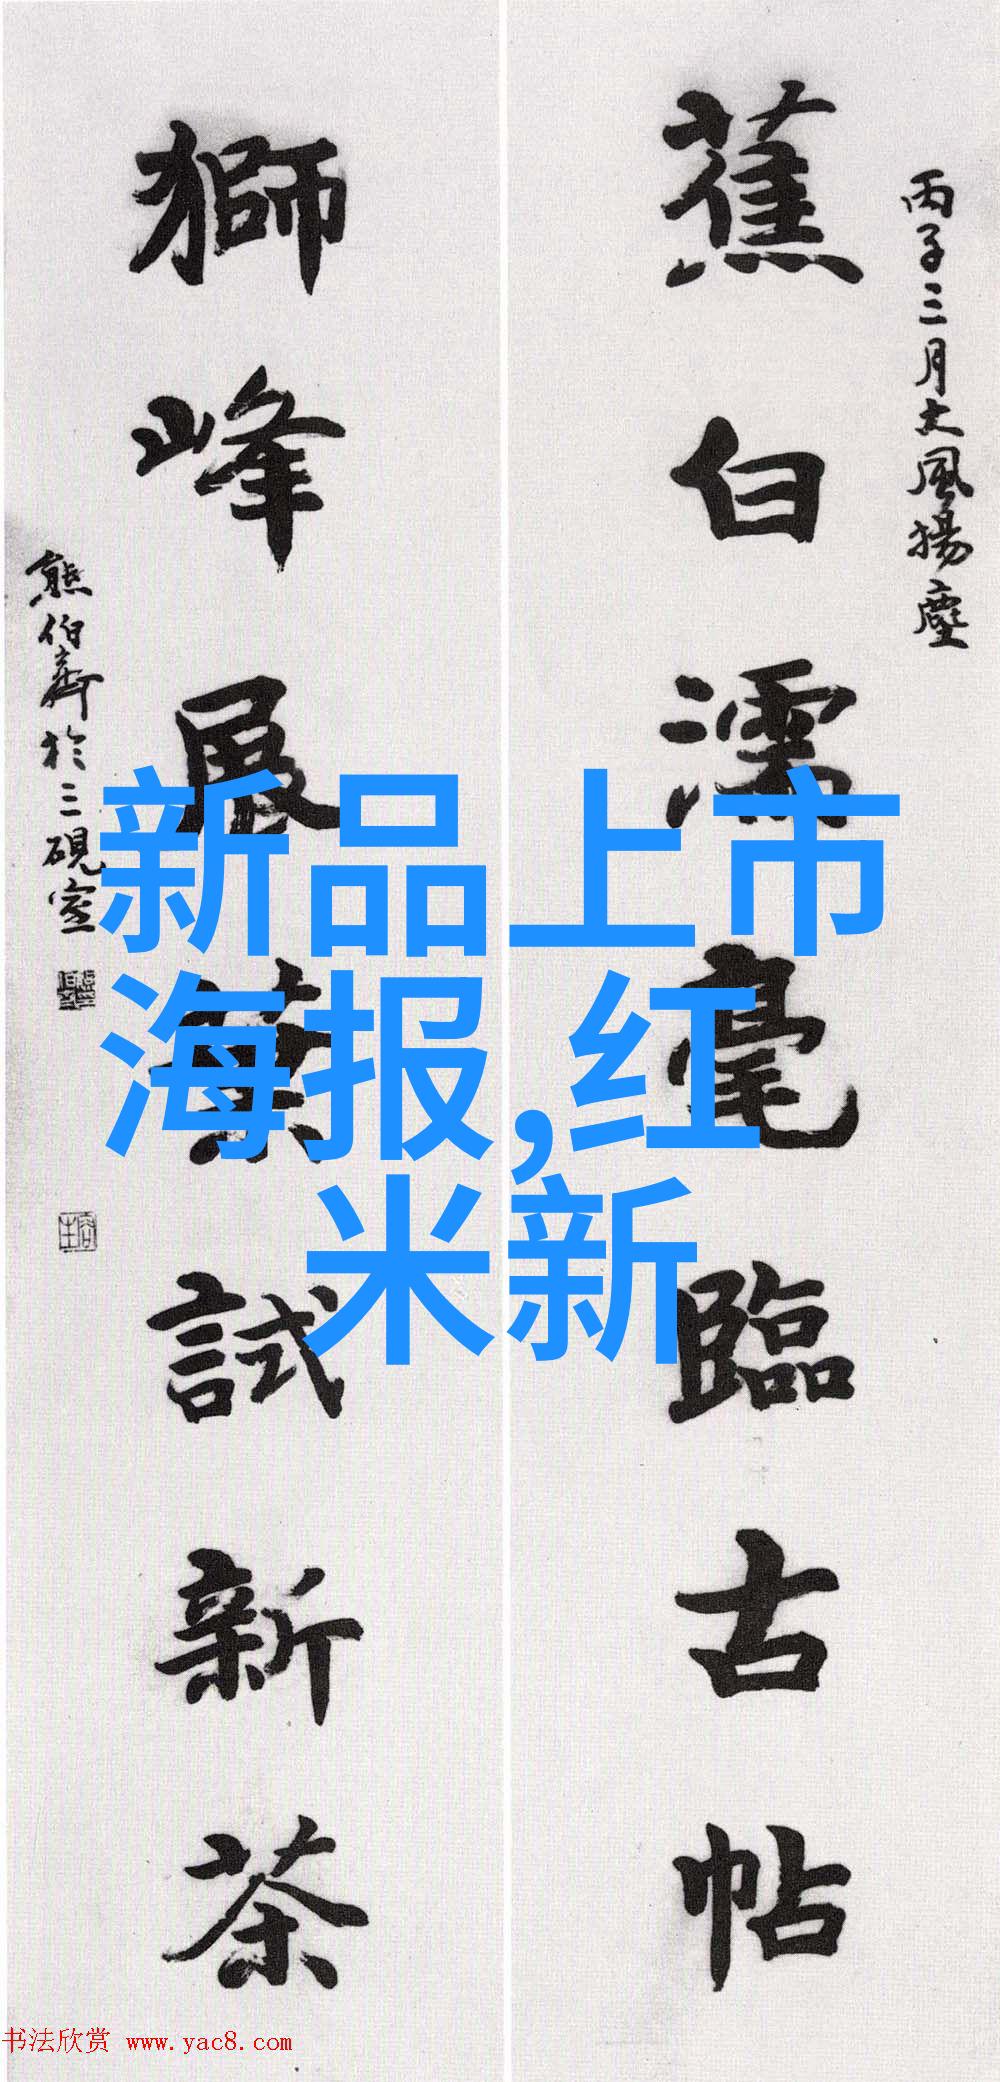 丙子三月大風揚塵
蕉白濡毫臨古帖
獅峰展葉試新茶
熊伯齊於三硯室
新品上市
海报,红
米新
书法欣赏 www.yac8.com